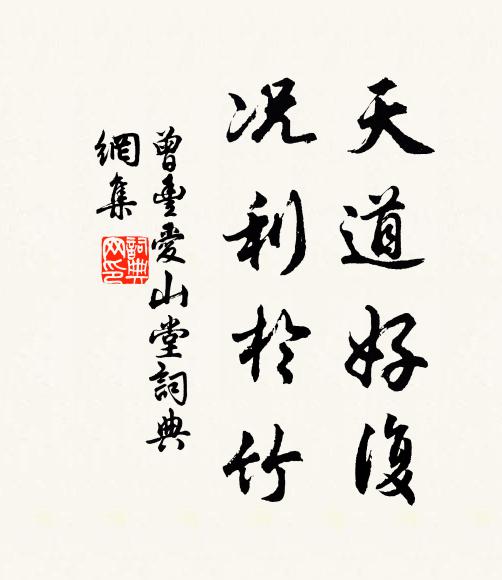 天道好復
况利於竹
曾豐愛山堂詞典
網集
詞典
网印